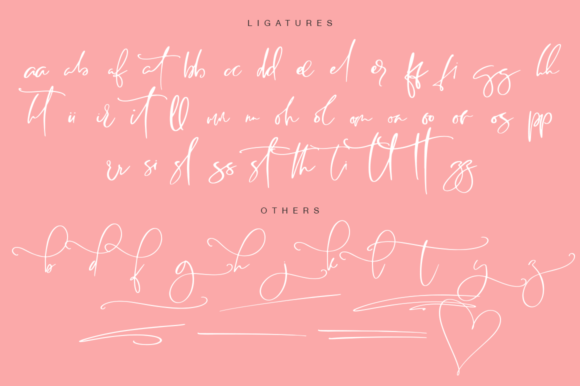 LIGATURES
aa ab af at bb cc dd ee el er ff fi gg hh
ht ii ir it ll oh ol om on oo or os pp
rr si sl ss st th ti tt zz
OTHERS
b d f g h j k l t y z